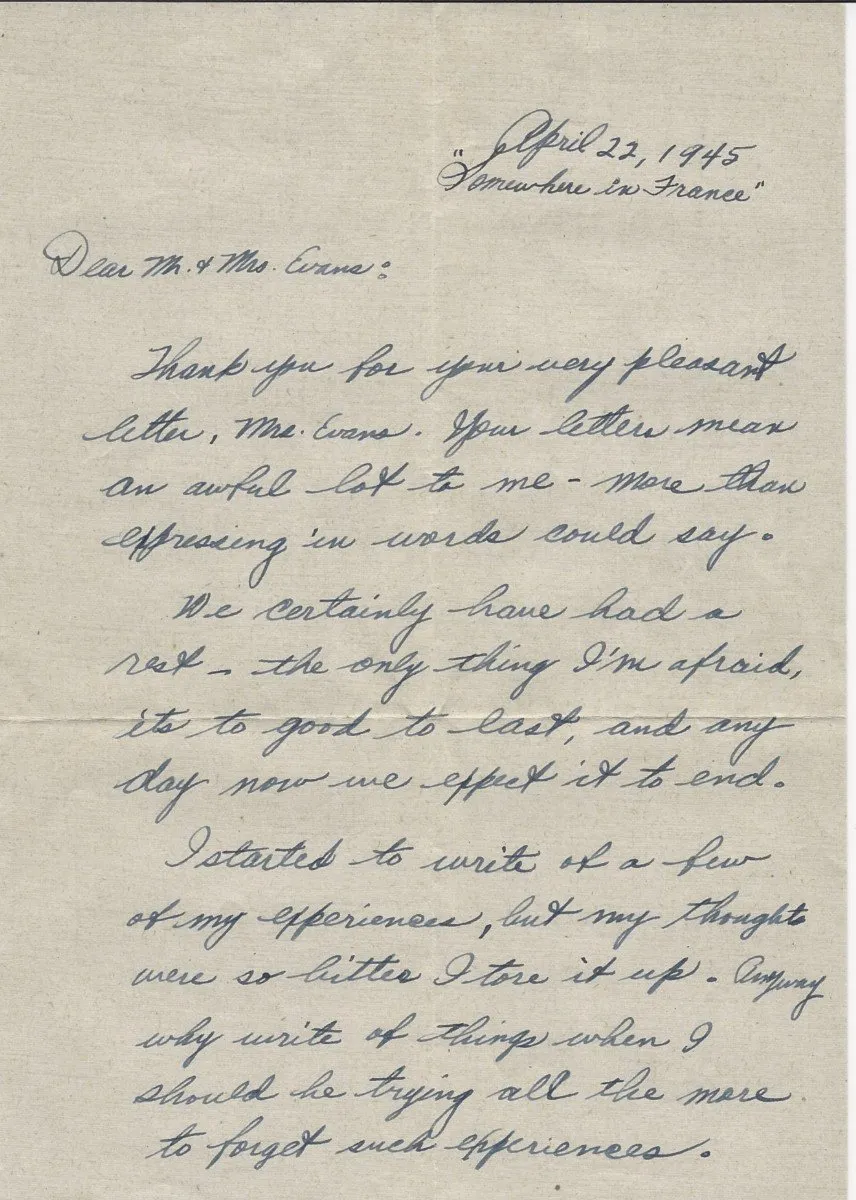 April 22, 1945
"Somewhere in France"
Dear Mr. & Mrs. Evans:
Thank you for your very pleasant
letter, Mrs. Evans. Your letters mean
an awful lot to me - more than
expressing in words could say.
We certainly have had a
rest - the only thing I'm afraid,
its to good to last, and any
day now we expect it to end.
I started to write of a few
of my experiences, but my thoughts
were so bitter I tore it up. Anyway
why write of things when I
should be trying all the more
to forget such experiences.